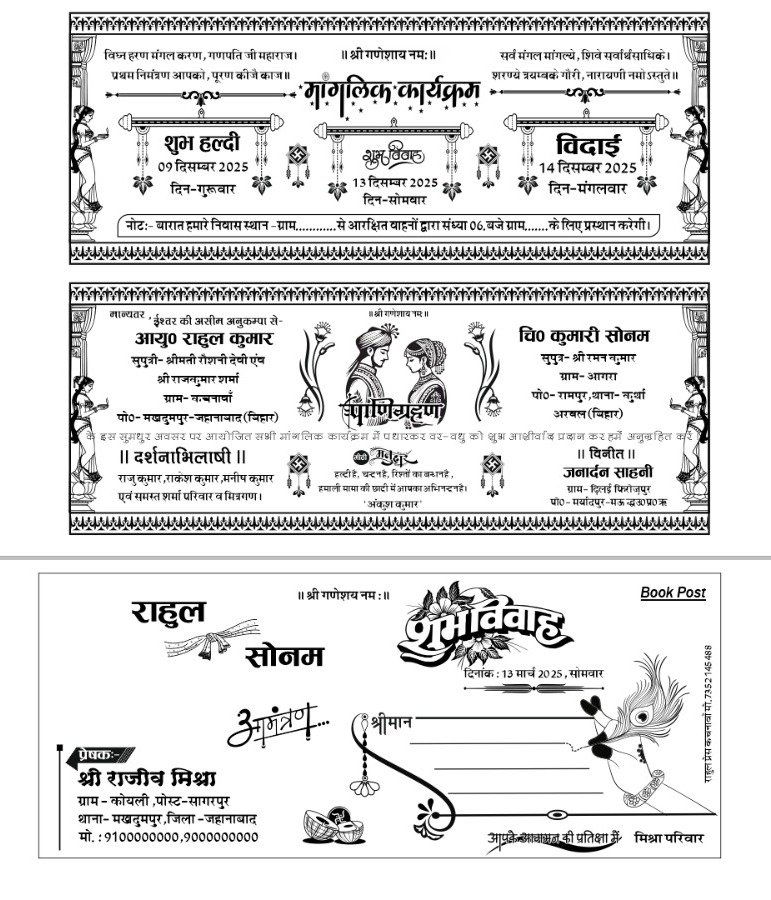 विघ्न हरण मंगल करण, गणपति जी महाराज।
प्रथम निमंत्रण आपको, पूरण कीजै काज॥
॥ श्री गणेशाय नम:॥
मांगलिक कार्यक्रम
सर्व मंगल मांगल्ये, शिवे सर्वार्थसाधिके।
शरण्ये त्रयम्बके गौरी, नारायणी नमोऽस्तुते॥
शुभ हल्दी
09 दिसम्बर 2025
दिन-गुरूवार
शुभ विवाह
13 दिसम्बर 2025
दिन-सोमवार
विदाई
14 दिसम्बर 2025
दिन-मंगलवार
नोट:- बारात हमारे निवास स्थान -ग्राम............से आरक्षित वाहनों द्वारा संध्या 06.बजे ग्राम.......के लिए प्रस्थान करेगी।
मान्यवर,
ईश्वर की असीम अनुकम्पा से-
आयु0 राहुल कुमार
सुपुत्री- श्रीमती रौशनी देवी एंव
श्री राजकुमार शर्मा
ग्राम- कचनावाँ
पो0- मखदुमपुर-जहानाबाद (बिहार)
॥श्री गणेशाय नम:॥
पाणिग्रहण
चि0 कुमारी सोनम
सुपुत्र- श्री रमन कुमार
ग्राम- आगरा
पो0- रामपुर,थाना- कुर्था
अरवल (बिहार)
के इस सुमधुर अवसर पर आयोजित सभी मांगलिक कार्यक्रम में पधारकर वर-वधु को शुभ आर्शीवाद प्रदान कर हमें अनुग्रहित करें
॥ दर्शनाभिलाषी ॥
राजु कुमार,राकेश कुमार,मनीष कुमार
एवं समस्त शर्मा परिवार व मित्रगण।
मनुहार
हल्दी है, चन्दन है, रिश्तों का बन्धन है,
हमाली मामा की छादी में आपका अभिनन्दन है।
'अंकुश कुमार'
॥ विनीत ॥
जनार्दन साहनी
ग्राम- दिलई फिरोजपुर
राहुल
सोनम
॥ श्री गणेशय नम :॥
शुभ विवाह
दिनांक : 13 मार्च 2025 , सोमवार
Book Post
आमंत्रण...
श्रीमान
प्रेषक:-
श्री राजीव मिश्रा
ग्राम - कोयली ,पोस्ट-सागरपुर
थाना- मखदुमपुर,जिला -जहानाबाद
मो. : 9100000000,9000000000
आपके आगमन की प्रतिक्षा में
मिश्रा परिवार
राहुल प्रेस कचनावाँ मो. 7352145488